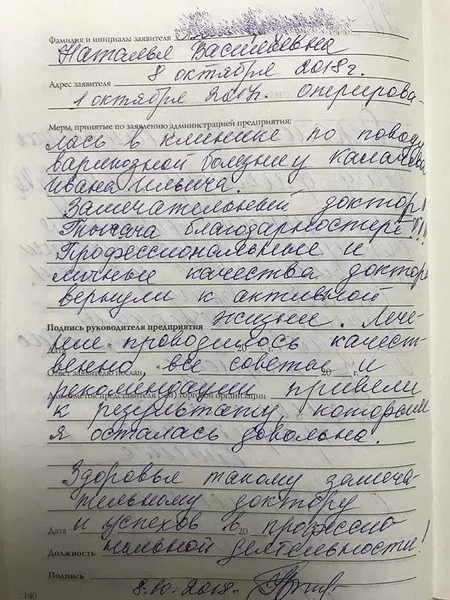 Фамилия и инициалы заявителя
Наталья Васильевна
8 октября 2018г.
Адрес заявителя
1 октября 2017г. оперирова-
Меры, принятые по заявлению администрацией предприятия:
лась в клинике по поводу
варикозной болезни у Калачева
Ивана Ильича.
Замечательный доктор!
Тысяча благодарностей!!!
Профессиональные и
личные качества доктора
вернули к активной
Подпись руководителя предприятия
жизни. Лече-
ние проводилось качест-
венно все советы и
Ответ заявителю послан
рекомендации привели
к результату, которым
я осталась довольна.
Здоровья такому замеча-
тельному доктору
Дата
и успехов в профессио-
20
Должность
нальной деятельности!
Подпись
8.10.2018г.
140